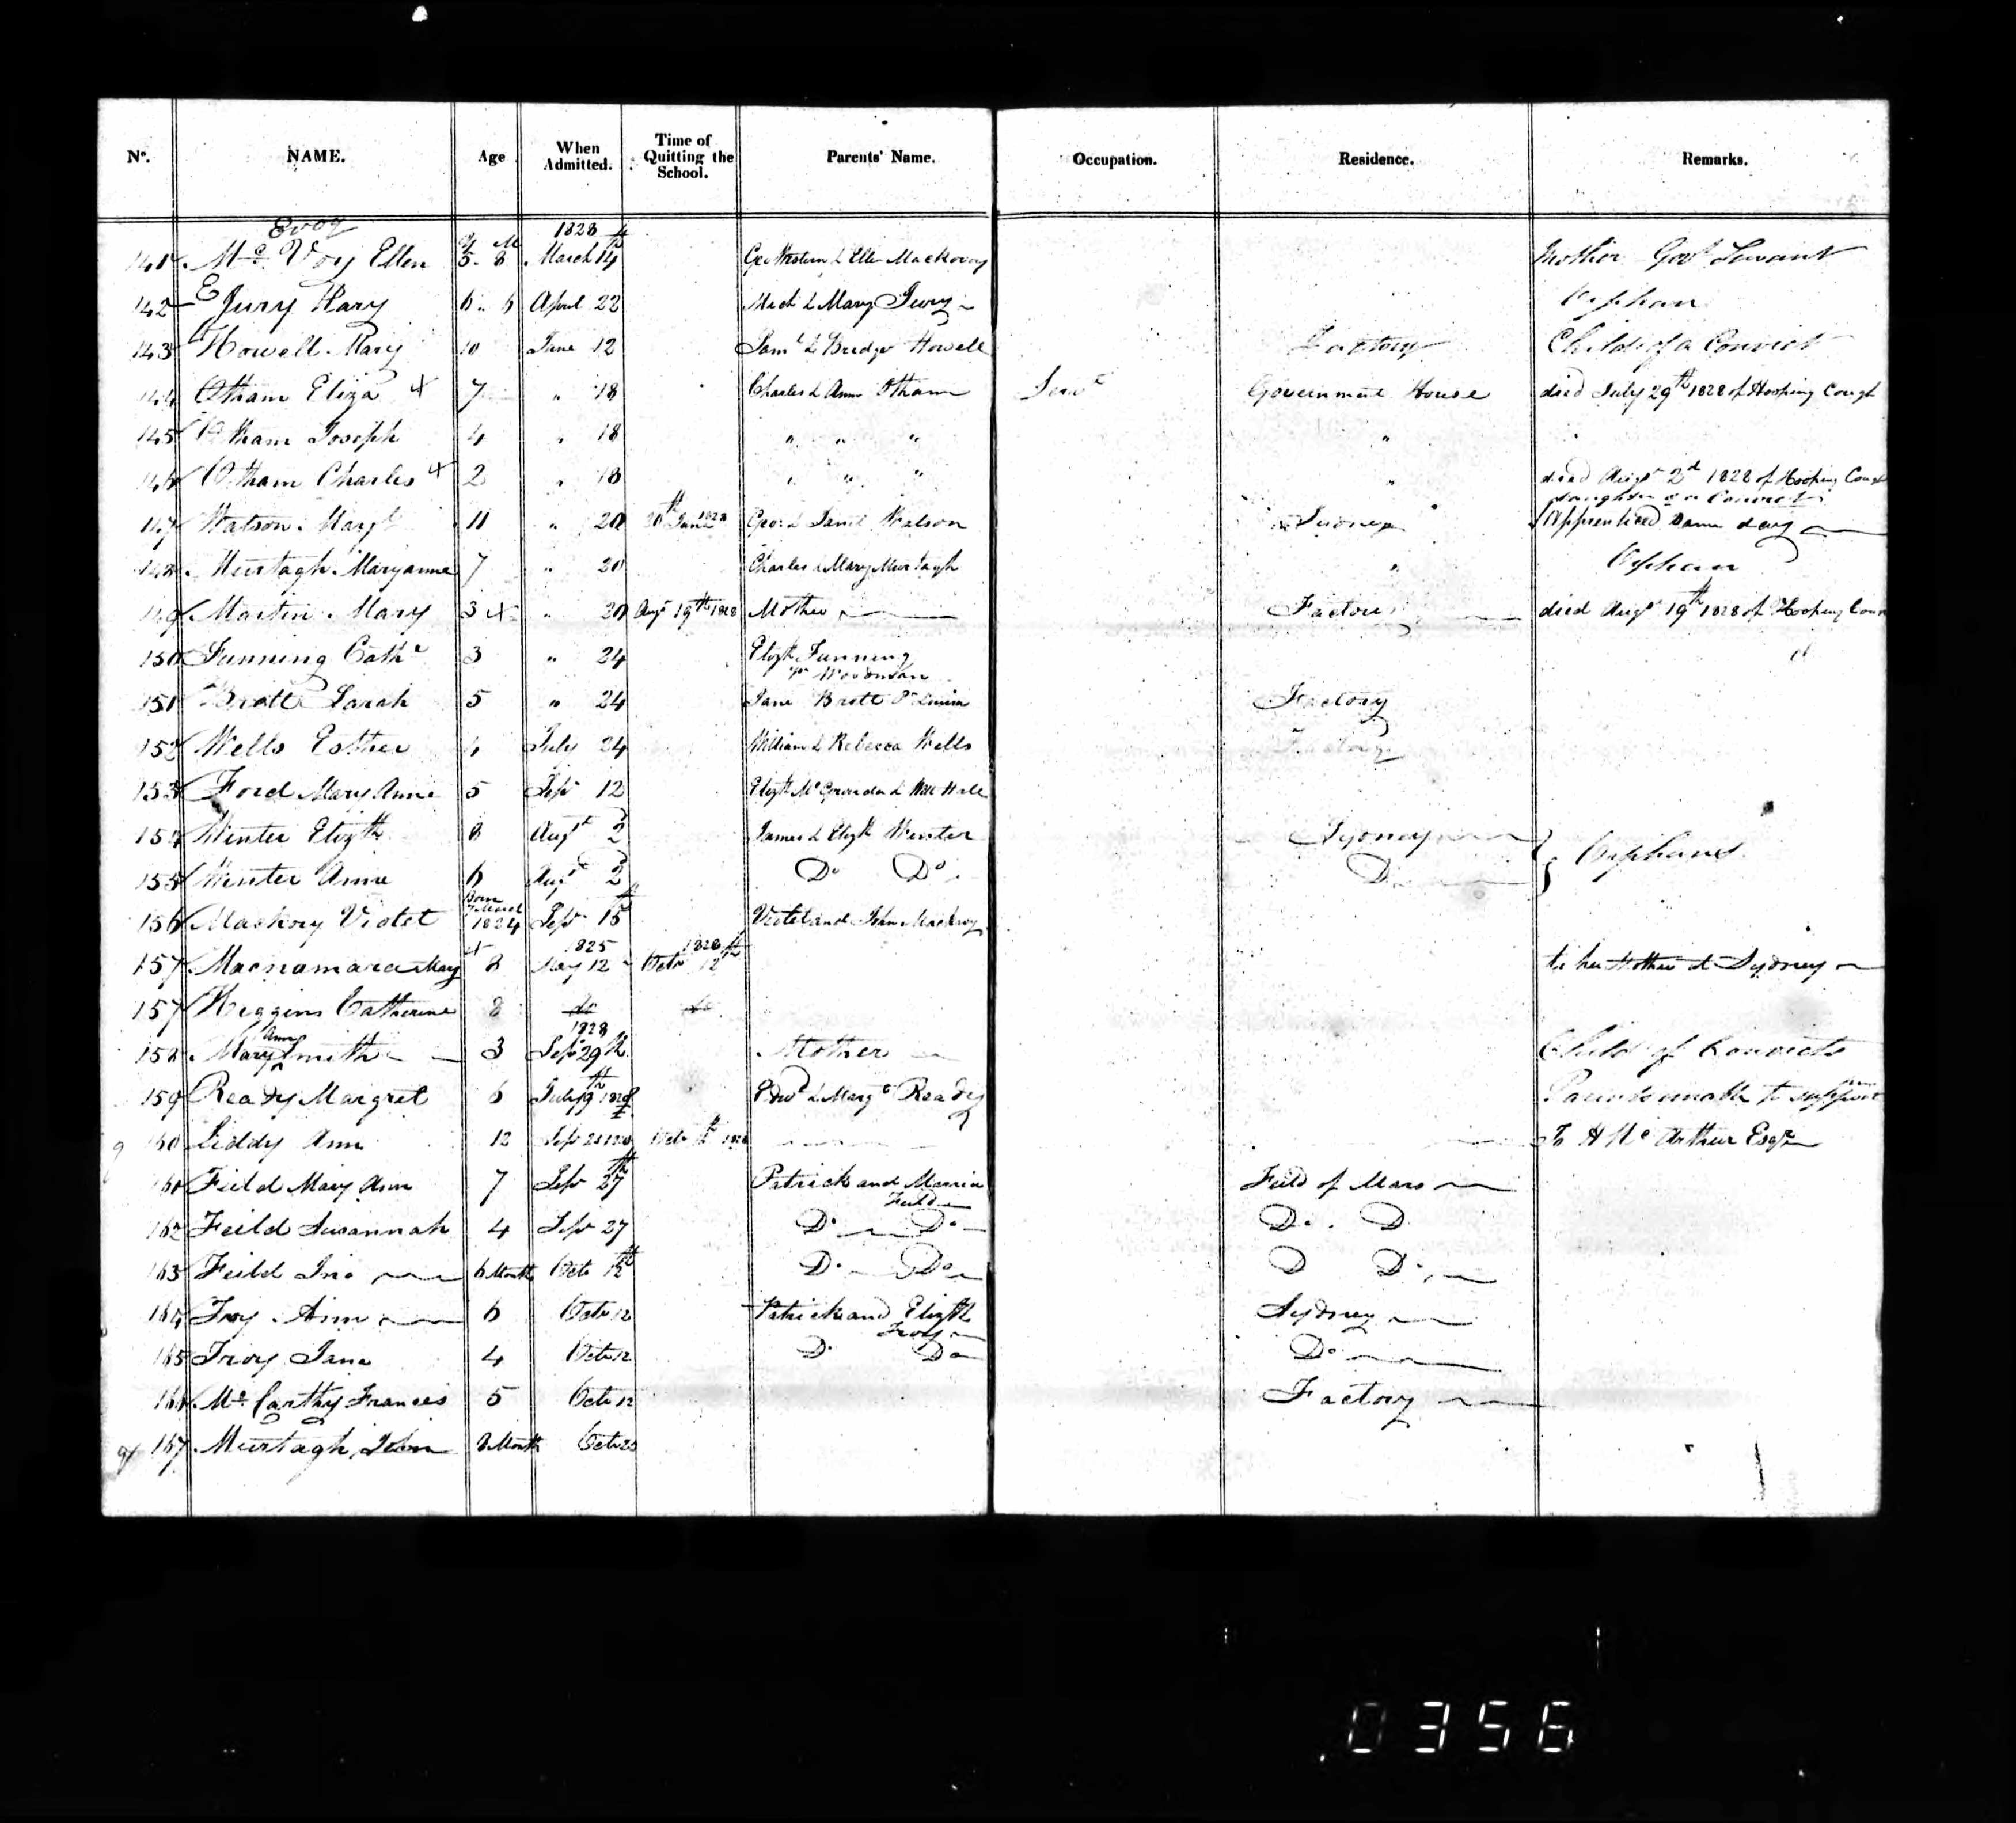 No. NAME. Age When Admitted. Time of Quitting the School. Parents' Name. Occupation. Residence. Remarks.
Evoy 1828
141 Mc Voy Ellen Y 5 M 8 March 14th Geo Western & Ellen Mackovoy Mother Govt Servant
142 E Jury Mary 6 " 6 April 22 Mich & Mary Jury Orphan
143 Howell Mary 10 June 12 Saml & Bridget Howell Factory Child of a Convict
144 Otham Eliza x 7 " 18 Charles & Ann Otham Servt Government House died July 29th 1828 of Hooping Cough
145 Otham Joseph 4 " 18 " " " "
146 Otham Charles x 2 " 18 " " " " died Augt 2d 1828 of Hooping Cough
daughter of a Convict
147 Watson Margt 11 " 20 20th June 1828 Geo. & Janet Watson Sydney Apprenticed same day
148 Murtagh Maryanne 7 " 20 Charles & Mary Murtagh " Orphan
149 Martin Mary 3 x " 20 Augt 19th 1828 Mother Factory died Augt 19th 1828 of Hooping Cough
150 Funning Cathe 3 " 24 Elizth Funning
pr Woodman
151 Brett Sarah 5 " 24 Jane Brett Pr Louisa Factory
152 Wells Esther 4 July 24 William & Rebecca Wells Factory
153 Ford Mary Anne 5 Sepr 12 Elizth & Will Hall
154 Winter Elizth 8 Augt 2 James & Elizth Winter Sydney Orphans
155 Winter Anne 6 Augt 2 Do Do Do
156 Mackoy Violet Born March 1824 Sepr 15th Violet and John Mackoy
1825 1828
157 Macnamara Mary x 8 May 12 Octr 12th to her Mother at Sydney
157 Higgins Catherine 8 do do
1828
158 Mary Ann Smith 3 Sepr 29th Mother Child of Convicts
159 Ready Margret 6 July 19th 1828 Edwd & Margt Ready Parents unable to support
160 Liddy Ann 12 Sepr 21 1828 Octr 1828 To H Mc Arthur Esqr
161 Feild Mary Ann 7 Sepr 27th Patrick and Maria Feild Feild of Mars
162 Feild Susannah 4 Sepr 27 Do Do Do. D
163 Feild Jno 6 Month Octr 12th Do Do D Do
164 Troy Ann 6 Octr 12 Patrick and Elizth Troy Sydney
165 Troy Jane 4 Octr 12 Do Do Do
166 Mc Carthy Frances 5 Octr 12 Factory
167 Murtagh John 8 Month Octr 20
0356